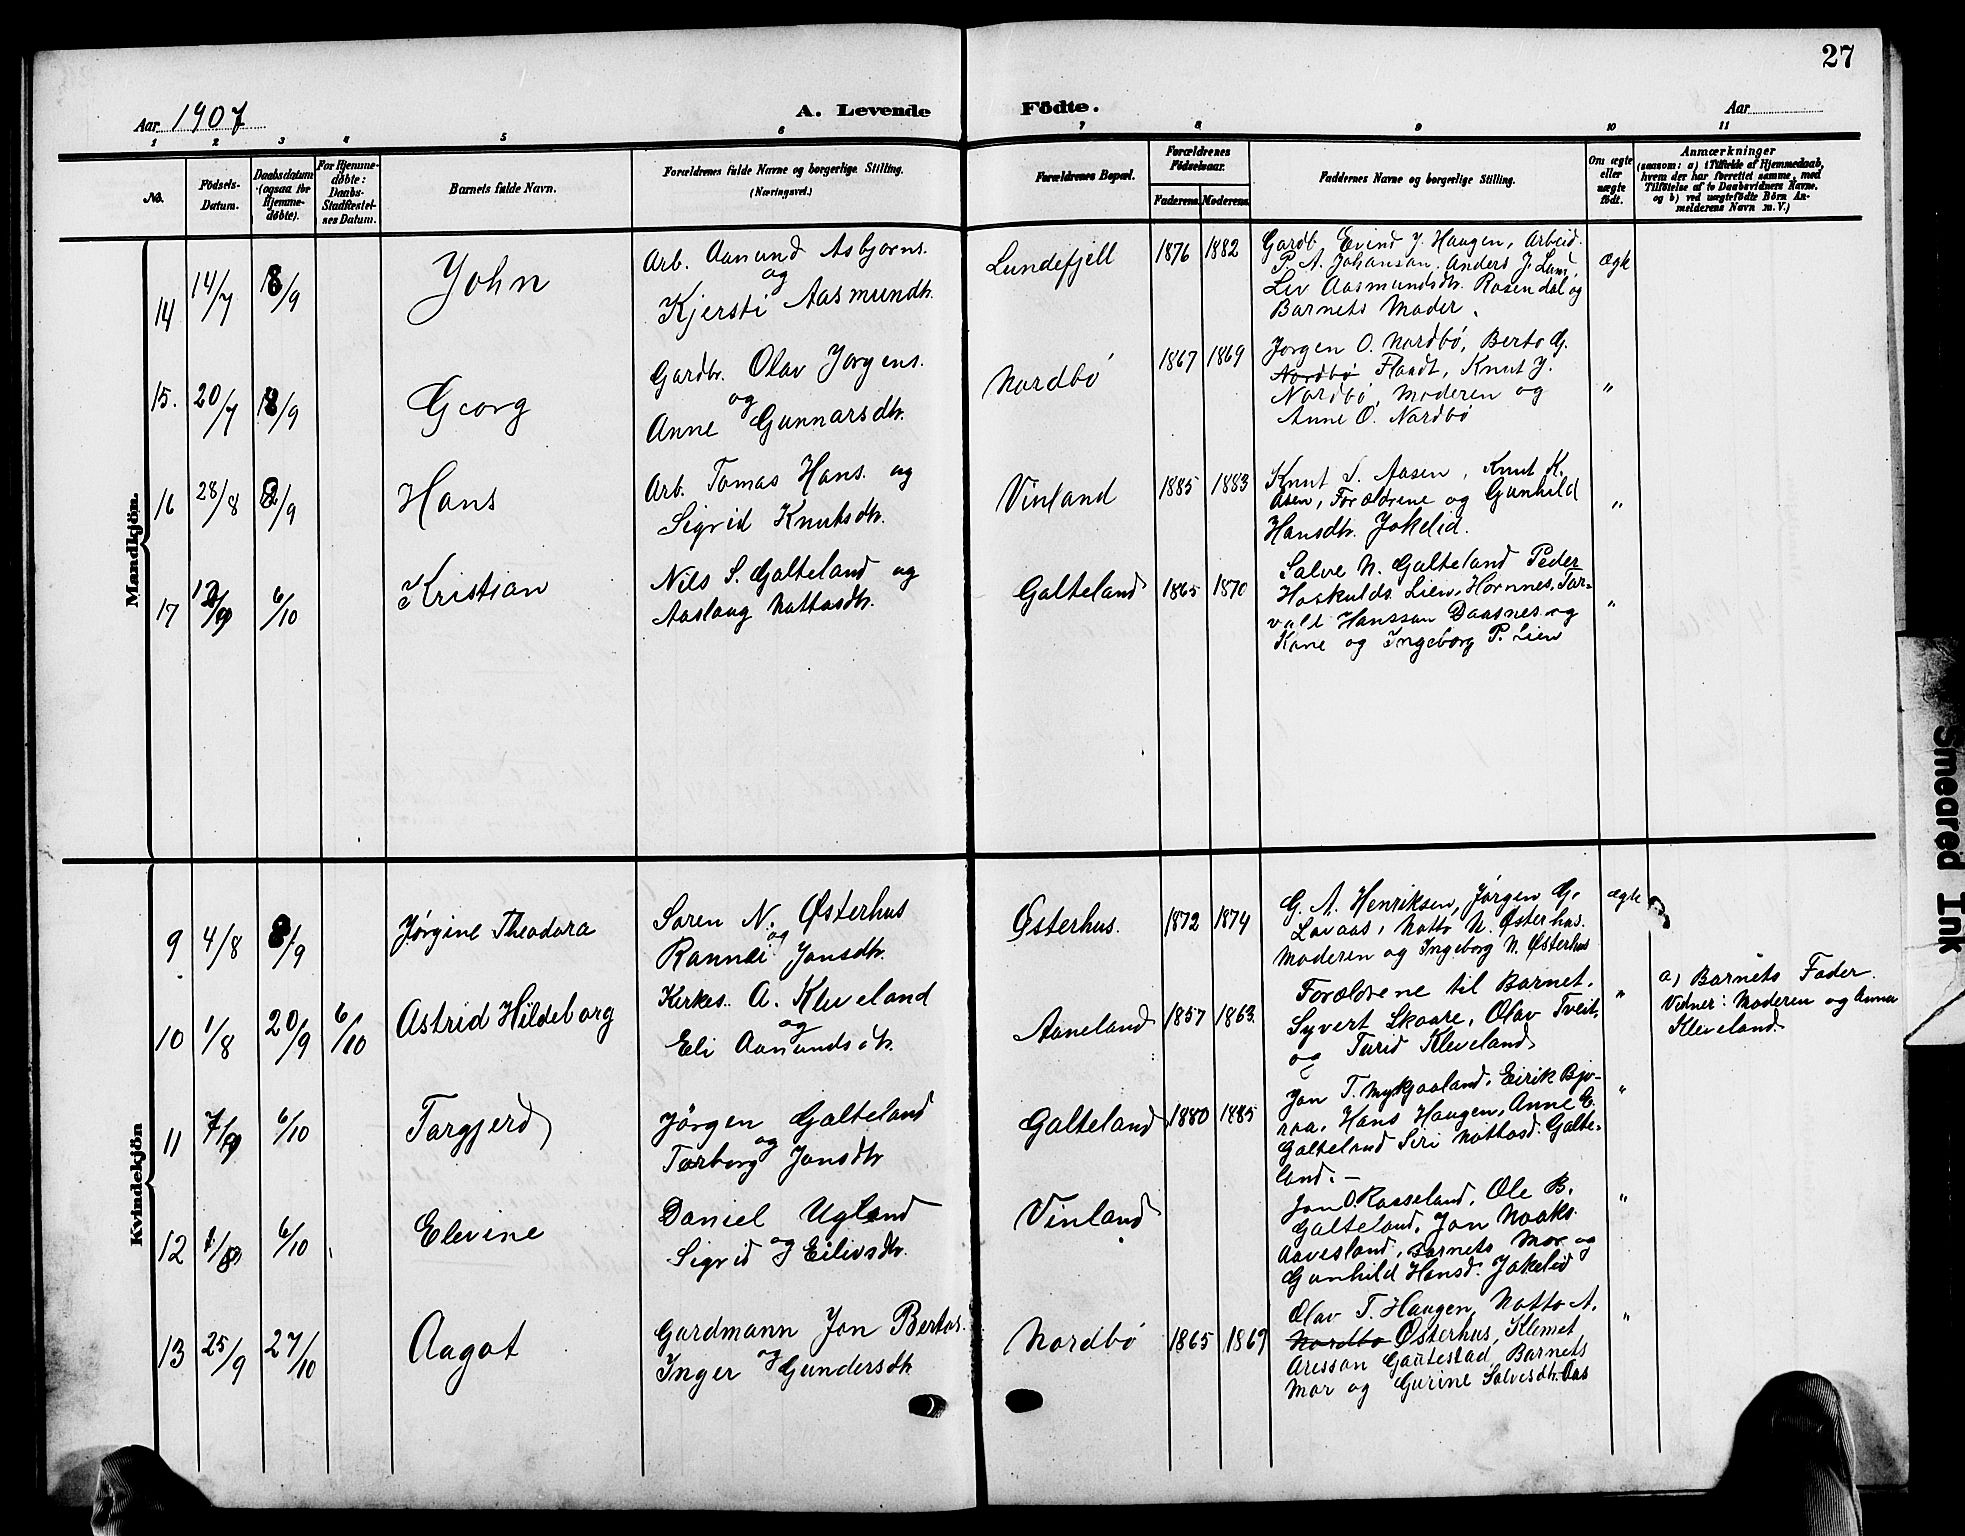 27
Aar 1907
A. Levende
Födte.
Aar
1 2 3 4 5 6 7 8 9 10 11
No.
Födsels-
Datum.
Daabsdatum
(ogsaa for
Hjemme-
døbte).
For Hjemme-
døbte:
Daabs-
Stadfæstel-
ses Datum.
Barnets fulde Navn.
Forældrenes fulde Navne og borgerlige Stilling.
(Næringsvei.)
Forældrenes Bopæl.
Forældrenes
Födselsaar.
Faderens.
Moderens.
Faddernes Navne og borgerlige Stilling.
Om ægte
eller
uægte
født.
Anmærkninger
(saasom: a) i Tilfælde af Hjemmedaab,
hvem der har forrettet samme, med
Tilföielse af to Daabsvidners Navne.
og b) ved uægtefödte Börn An-
melderens Navn m. V.)
Mandkjön.
14 14/7 8/9 John
Arb. Aanund Asbjørns.
og
Kjersti Aasmundh.
Lundefjell 1876 1882
Gardb. Eivind J. Haugen, Arbeid.
P. A. Johanson. Anders J. Lund,
Liv Aasmundsdtr. Rosendal og
Barnets Moder.
ægte
15. 20/7 8/9 Georg
Gardbr. Olav Jørgens.
og
Anne Gunnarsdtr.
Nordbø 1867 1869
Jørgen O. Nordbø, Berto G.
Nordbø Flaadt, Knut J.
Nordbø, Moderen og
Anne O. Nordbø
"
16 28/8 /9 Hans
Arb. Tomas Hans. og
Sigrid Knutsdtr.
Vinland 1885 1883
Knut S. Aasen, Knut K.
Åsen, Forældrene og Gunhild
Hansdtr. Jokelid.
"
17 /9 6/10 Kristian
Nils S. Galteland og
Aaslaug Nattosdtr.
Galteland 1865 1870
Salve N. Galteland Peder
Hoskulds. Lien, Hornnes, Tor-
vald Hansson Daasnes og
Kone og Ingeborg P. Lien
"
Kvindekjön
9 4/8 8/9 Jørgine Theodora
Søren N. Østerhus
og
Rannei Jonsdtr.
Østerhus. 1872 1874
G. A. Henriksen, Jørgen G.
Lovaas, Natto N. Østerhus.
Moderen og Ingeborg N. Østerhus
ægte
10 1/8 20/9 6/10 Astrid Hildeborg
Kirkes. A. Kleveland
og
Eli Aanundsdtr.
Aaneland 1857 1863.
Forældrene til Barnet,
Syvert Skaare, Olav Tveit,
og Turid Kleveland
"
a) Barnets Fader.
Vidner: Moderen og Anna
Kleveland
11 7/9 6/10 Torgjerd
Jørgen Galteland
og
Torborg Jonsdtr
Galteland 1880 1885
Jon T. Mykjaaland, Eirik Bjo-
raa, Hans Haugen, Anne E.
Galteland Siri Nattosd. Galte-
land. –
"
12 6/10 Elevine
Daniel Ugland
og
Sigrid Eilivsdtr.
Vinland
Jon O. Raaseland, Ole B.
Galteland, Jon Noaks.
Aavesland, Barnets Mor og
Gunhild Hansd. Jokelid
"
13 25/9 27/10 Aagot
Gardmann Jon Bertos.
og
Inger Gundersdtr.
Nordbø 1865 1869
Olav T. Haugen, Natto A.
Nordbø Østerhus, Klemet
Aresson Gautestad, Barnets
Mor og Gurine Salvesdtr. Aas
"
Smeared Ink